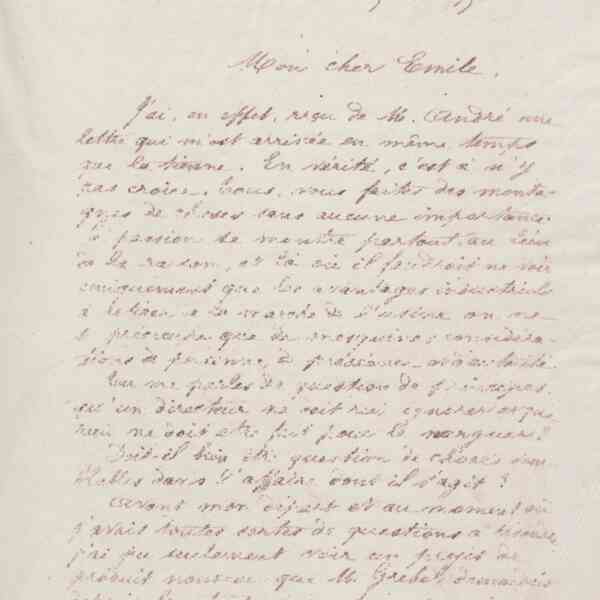 Mon cher Emile.
J'ai, en effet, reçu de M. André une
lettre qui m'est arrivée en même temps
que la tienne. En vérité, c'est à n'y
pas croire. Tous, vous faites des monta-
gnes de choses sans aucune importance.
La passion se montre partout au lieu
de la raison, et là où il faudrait ne voir
uniquement que les avantages industriels
à retirer de la marche de l'usine on ne
se préoccupe que de mesquines considéra-
tions de personne, de préséance,
Tu me parles de question de principes,
qu'un directeur ne doit rien ignorer et que
rien ne doit être fait pour le
Doit-il bien être question de choses sem-
blables dans l'affaire dont il s'agit ?
Avant mon départ et au moment où
j'avais toutes sortes de questions à
j'ai pu seulement voir un projet de
produit nouveau que M. Grebel